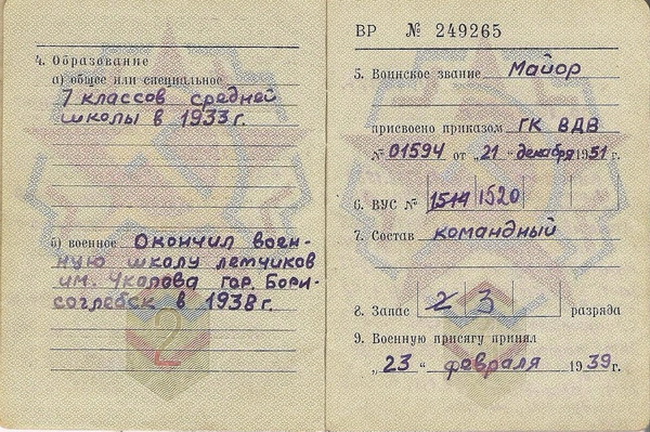 4. Образование
а) общее или специальное
7 классов средней
школы в 1933 г.
б) военное Окончил воен-
ную школу летчиков
им. Чкалова гор. Бори-
соглебск в 1938 г.
2
ВР № 249265
5. Воинское звание Майор
присвоено приказом ГК ВДВ
№ 01594 от „21“ декабря 1951 г.
6. ВУС № 1514 1520
7. Состав командный
8. Запас 2 3 разряда
9. Военную присягу принял
„23“ февраля 1939 г.